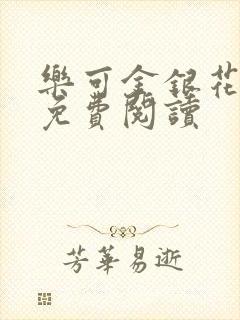 樂可金銀花
免費閱讀
芳華易逝